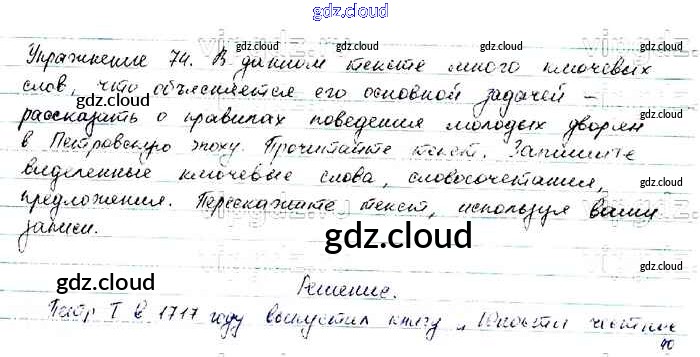 gdz.cloud
Упражнение 74. В данном тексте много ключевых
слов, что объясняется его основной задачей –
рассказать о правилах поведения молодых дворян
в Петровскую эпоху. Прочитайте текст. Запишите
выделенные ключевые слова, словосочетания,
предложения. Перескажите текст, используя ваши
записи.
gdz.cloud
Решение.
Петр I в 1717 году выпустил книгу „Юности честное
40